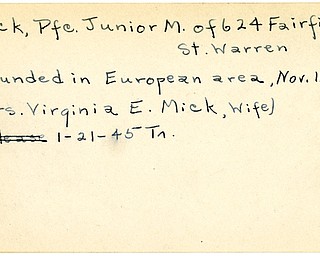 ck, Pfc. Junior M. of 624 Fairfi
St. Warren
unded in European area, Nov. 1
rs. Virginia E. Mick, Wife)
1-21-45 Tr.